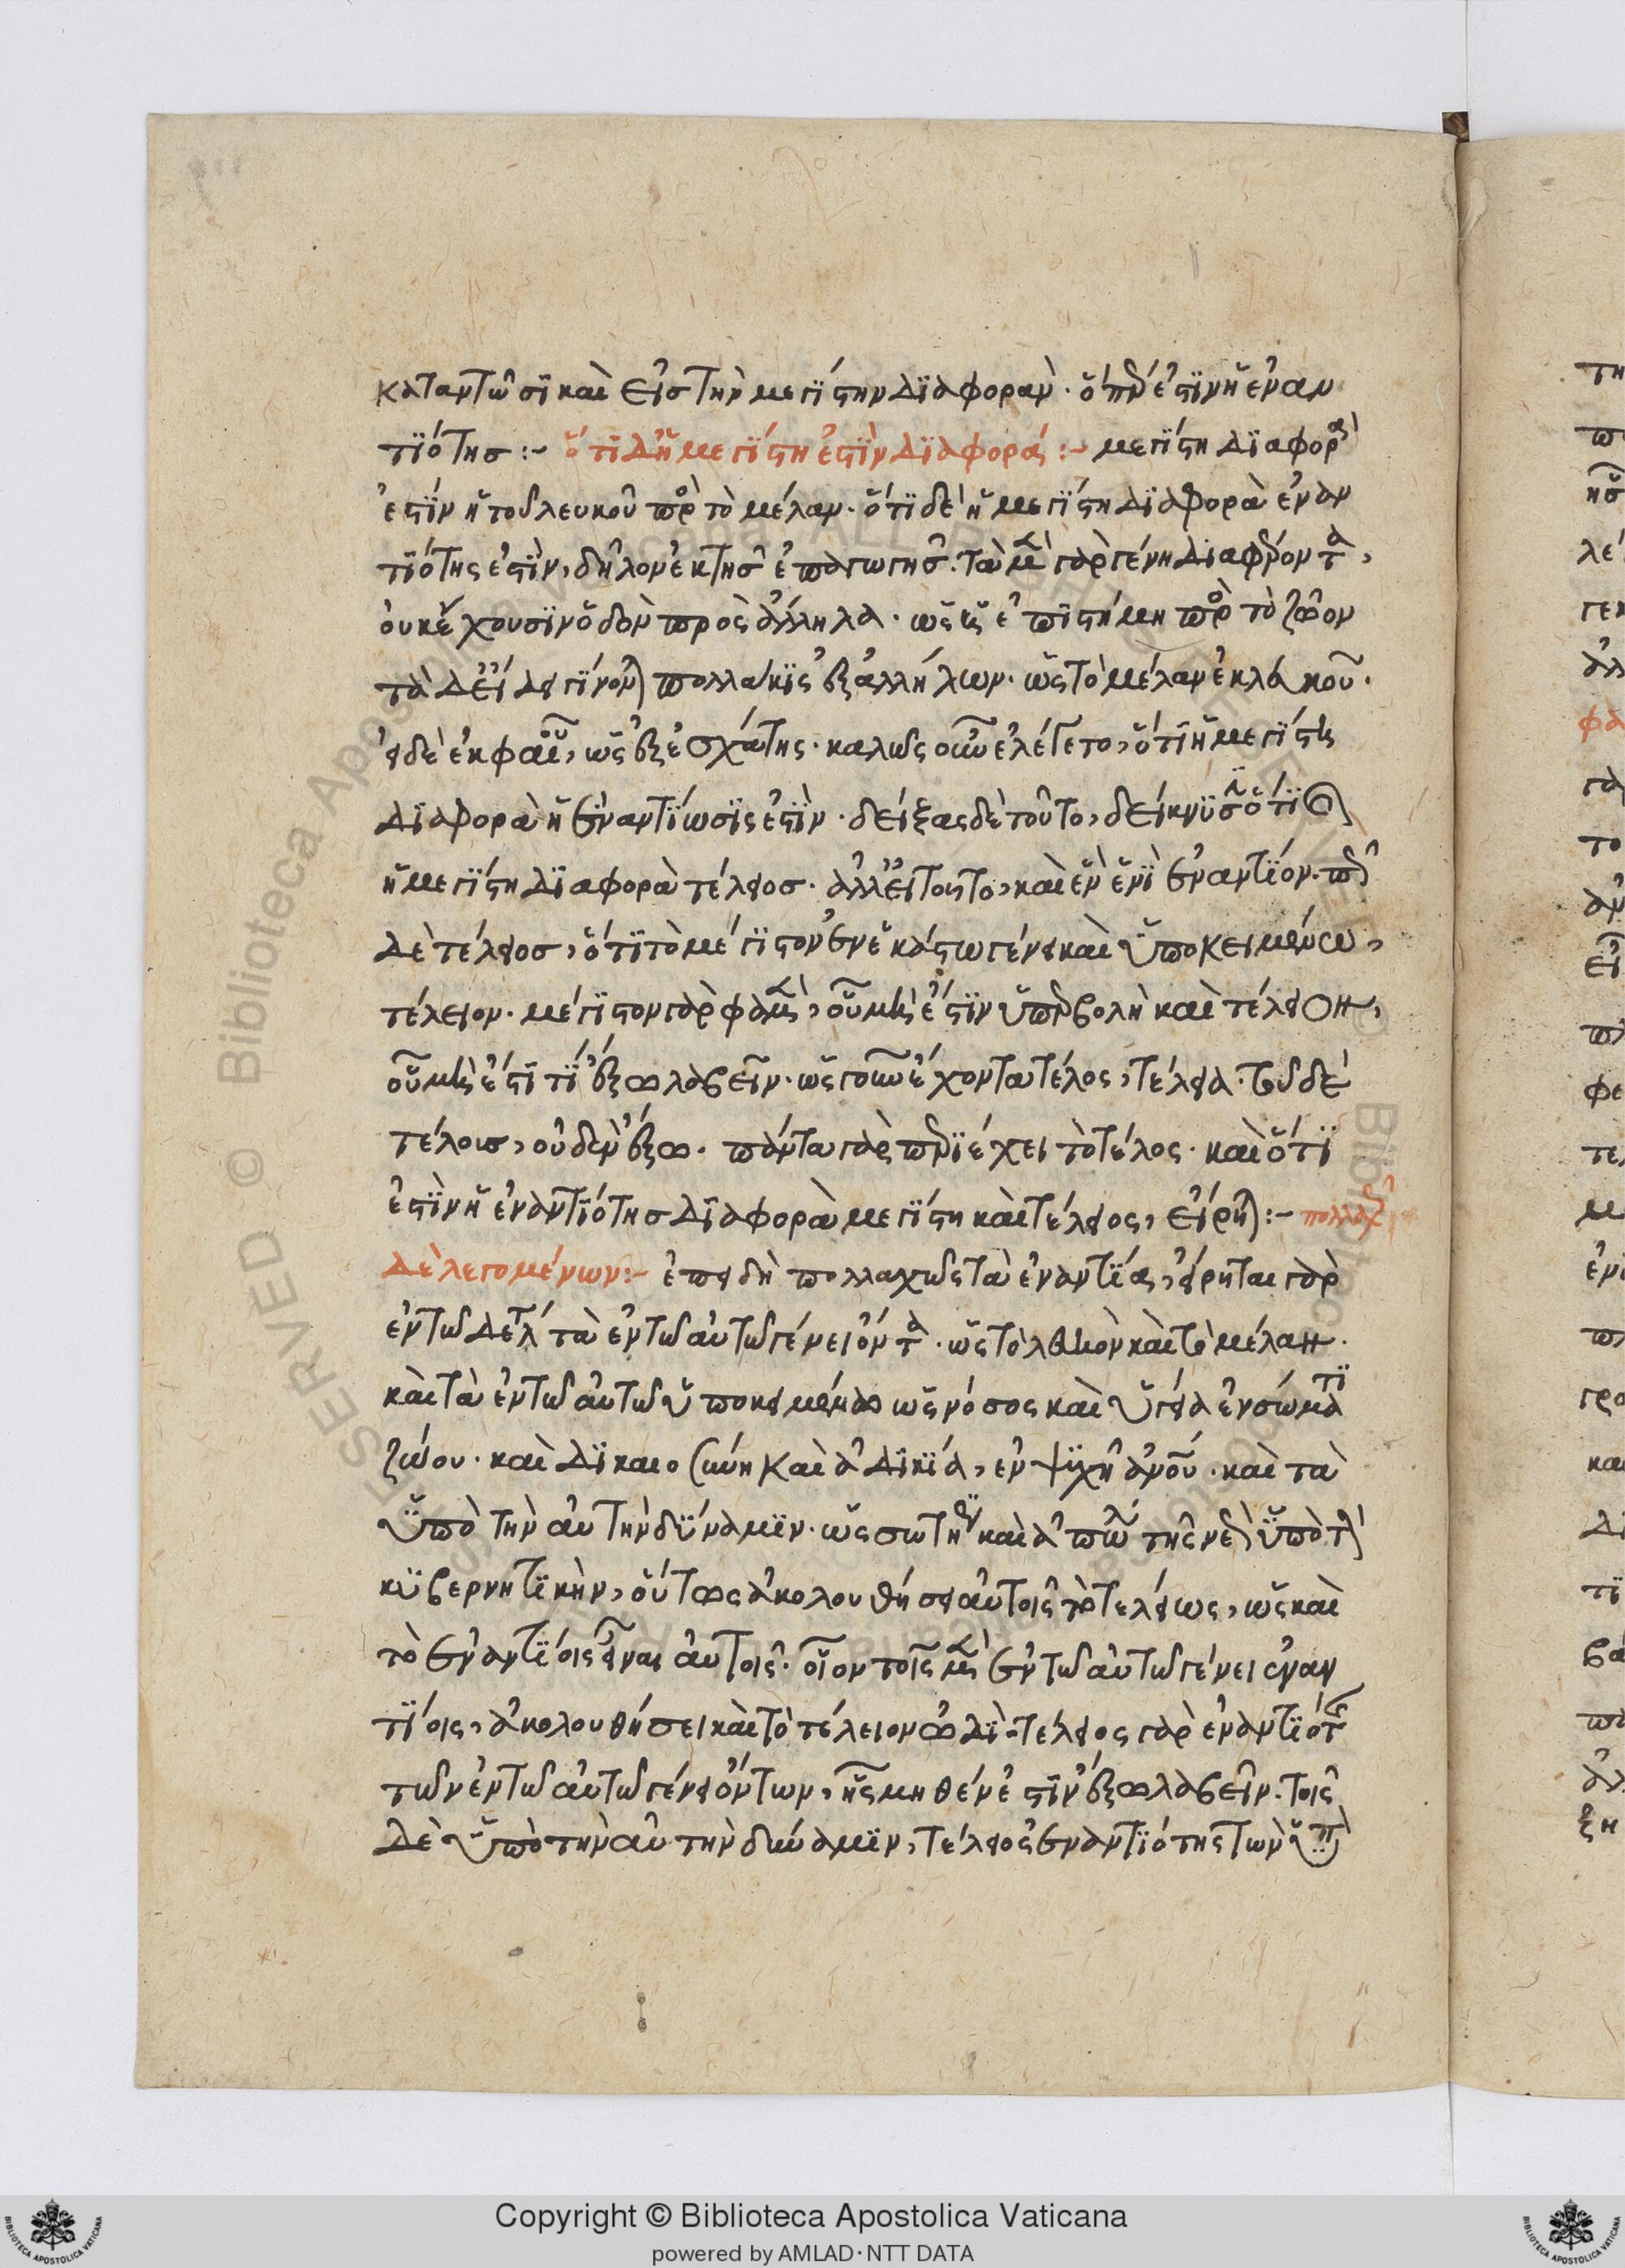 καταντῶσϊ καὶ εἰς τὴν μεγίστην διαφορὰν · ὅπερ ἐστϊν ἡ ἐναν
τϊότης :- ὅτι δὴ ἡ μεγίστη ἐστὶν διαφορά :- μεγίστη διαφορὰ
ἐστϊν ἡ τοῦ λευκοῦ πρὸς τὸ μέλαν · ὅτι δὲ ἡ μεγίστη διαφορὰ ἐναν
τϊότης ἐστὶν, δῆλον ἐκ τῆς ἐπαγωγῆς · τὰ μὲν γὰρ γένη διαφέροντα,
οὐκ ἔχουσϊν ὁδὸν πρὸς ἄλληλα · ὡς ἡ ἐπιστήμη πρὸς τὸ ζῶον
τὰ δὲ εἴδει γίνονται πολλάκις ἐξ ἀλλήλων · ὡς τὸ μέλαν ἐκ λευκοῦ ·
καλῶς οὖν ἐλέγετο, ὅτι ἡ μεγίστη
διαφορὰ ἡ ἐναντίωσϊς ἐστὶν · δείξας δὲ τοῦτο, δείκνυσιν ὅτι ἐστὶν
ἡ μεγίστη διαφορὰ τέλειος · ἀλλ' εἰ τοῦτο, καὶ ἓν ἑνὶ ἐναντίον ·
δὲ τέλειος, ὅτι τὸ μέγιστον ἐν ἑκάστω γένει καὶ ὑποκειμένω,
τέλειον · μέγιστον γὰρ φαμὲν, οὗ μή ἐστιν ὑπερβολὴ καὶ τέλειον,
οὗ μή ἐστί τι ἔξω λαβεῖν · ὡς γοῦν ἔχοντα τέλος, τέλεια · τοῦ δὲ
τέλους, οὐδὲν ἔξω · πάντα γὰρ περιέχει τὸ τέλος · καὶ ὅτι
ἐστὶν ἡ ἐναντιότης διαφορὰ μεγίστη καὶ τέλειος, εἴρηται :- πολλαχῶς
δὲ λεγομένων :- ἐπειδὴ πολλαχῶς τὰ ἐναντία, εἴρηται γὰρ
ἐν τῶ δέλτα τὰ ἐν τῶ αὐτῶ γένει ὄντα · ὡς τὸ λευκὸν καὶ τὸ μέλαν ·
καὶ τὰ ἐν τῶ αὐτῶ ὑποκειμένω ὡς νόσος καὶ ὑγεία ἐν σώματι
ζώου · καὶ δικαιοσύνη καὶ ἀδικία, ἐν ψυχῆ ἀνοῦ · καὶ τὰ
ὑπὸ τὴν αὐτὴν δύναμιν · ὡς σωτηρία καὶ ἀπώλεια τῆς νεὼς ὑπὸ τὴν
κυβερνητικὴν, οὕτως ἀκολουθήσει αὐτοῖς τὸ τελείως, ὡς καὶ
τὸ ἐναντίοις εἶναι αὐτοῖς · οἷον τοῖς μὲν ἐν τῶ αὐτῶ γένει ἐναν
τίοις, ἀκολουθήσει καὶ τὸ τέλειον ὧδϊ · τέλειος γὰρ ἐναντιότης
τῶν ἐν τῶ αὐτῶ γένει ὄντων, ἧς μηθέν ἐστιν ἔξω λαβεῖν · τοῖς
δὲ ὑπὸ τὴν αὐτὴν δύναμιν, τέλειος ἐναντιότης τῶν ὑπὸ
Copyright © Biblioteca Apostolica Vaticana
powered by AMLAD·NTT DATA